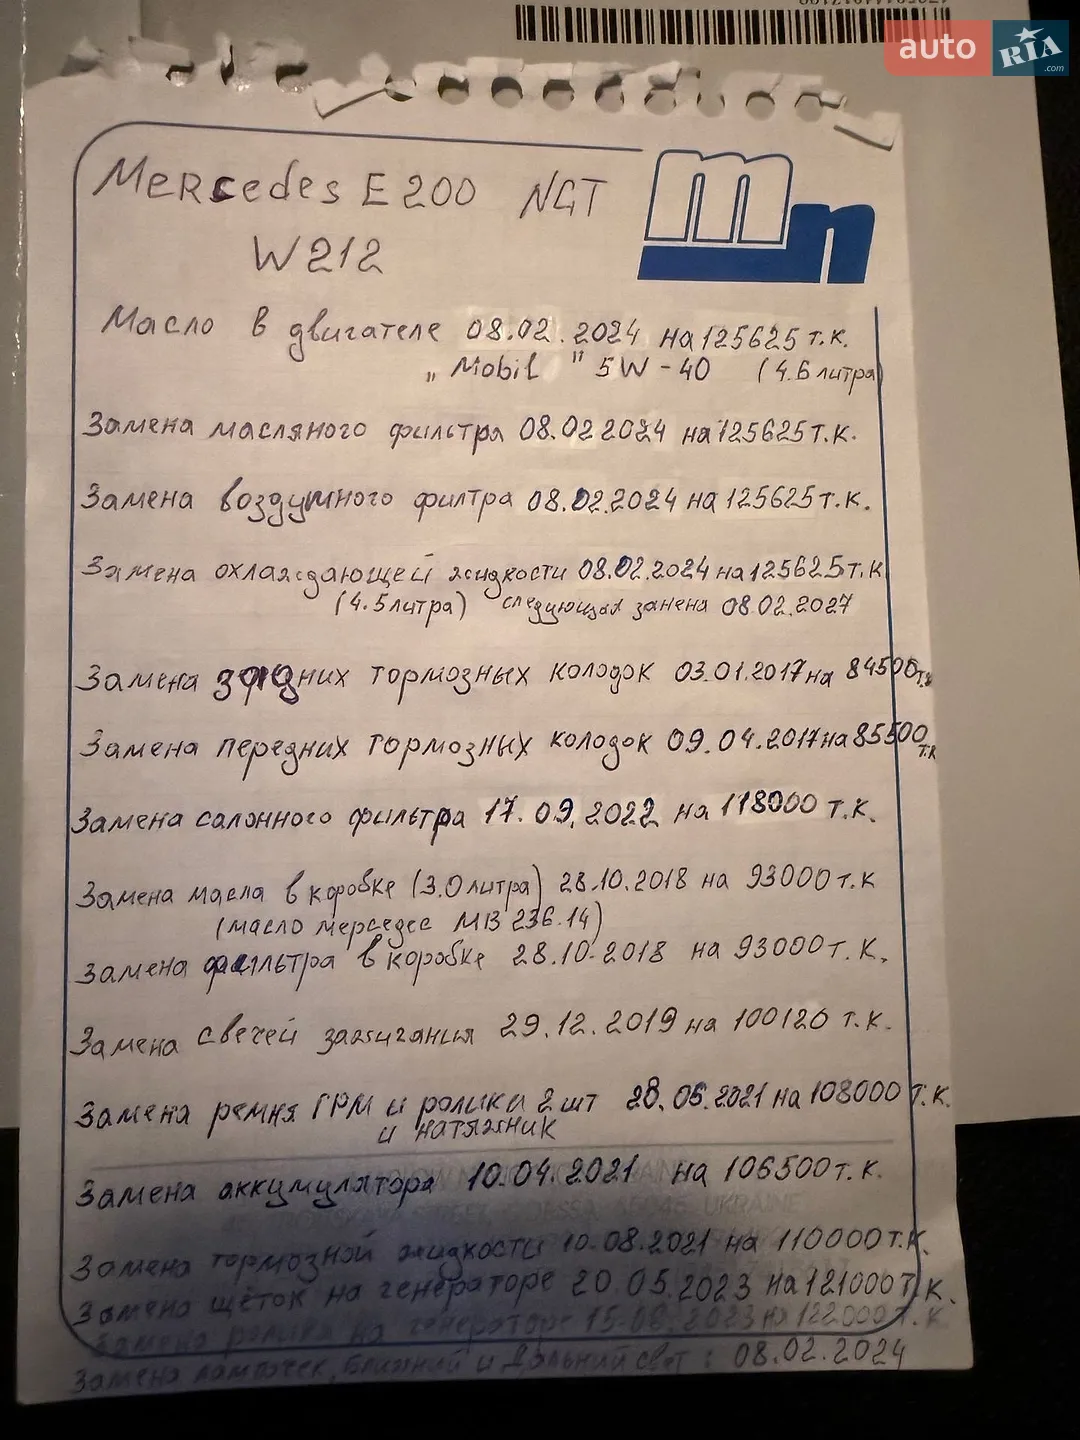 auto RIA .com
Mercedes E 200 NGT
W212
mn
Масло в двигателе 08.02.2024 на 125625 т.к.
„ Mobil " 5W-40 (4.6 литра)
Замена масляного фильтра 08.02 2024 на 125625 т.к.
Замена воздушного филтра 08.02.2024 на 125625 т.к.
Замена охлаждающей жидкости 08.02.2024 на 125625 т.к
(4.5 литра) следующая замена 08.02.2027
Замена задних тормозных колодок 03.01.2017 на 84500 т.к
Замена передних тормозных колодок 09.04.2017 на 85500 т.к
Замена салонного фильтра 17.09.2022 на 118000 т.к.
Замена масла в коробке (3.0 литра) 28.10.2018 на 93000 т.к
(масло мерседес МВ 236.14)
Замена фильтра в коробке 28.10.2018 на 93000 т.к.
Замена свечей зажигания 29.12.2019 на 100120 т.к.
Замена ремня ГРМ и ролики 2 шт 28.05.2021 на 108000 т.к.
и натяжник
Замена аккумулятора 10.04.2021 на 106500 т.к.
Замена тормозной жидкости 10.08.2021 на 110000 т.к.
Замена щёток на генераторе 20.05.2023 на 121000 т.к.
Замена ролика на генераторе 15.08.2023 на 122000 т.к.
Замена лампочек, ближний и Дальний свет : 08.02.2024